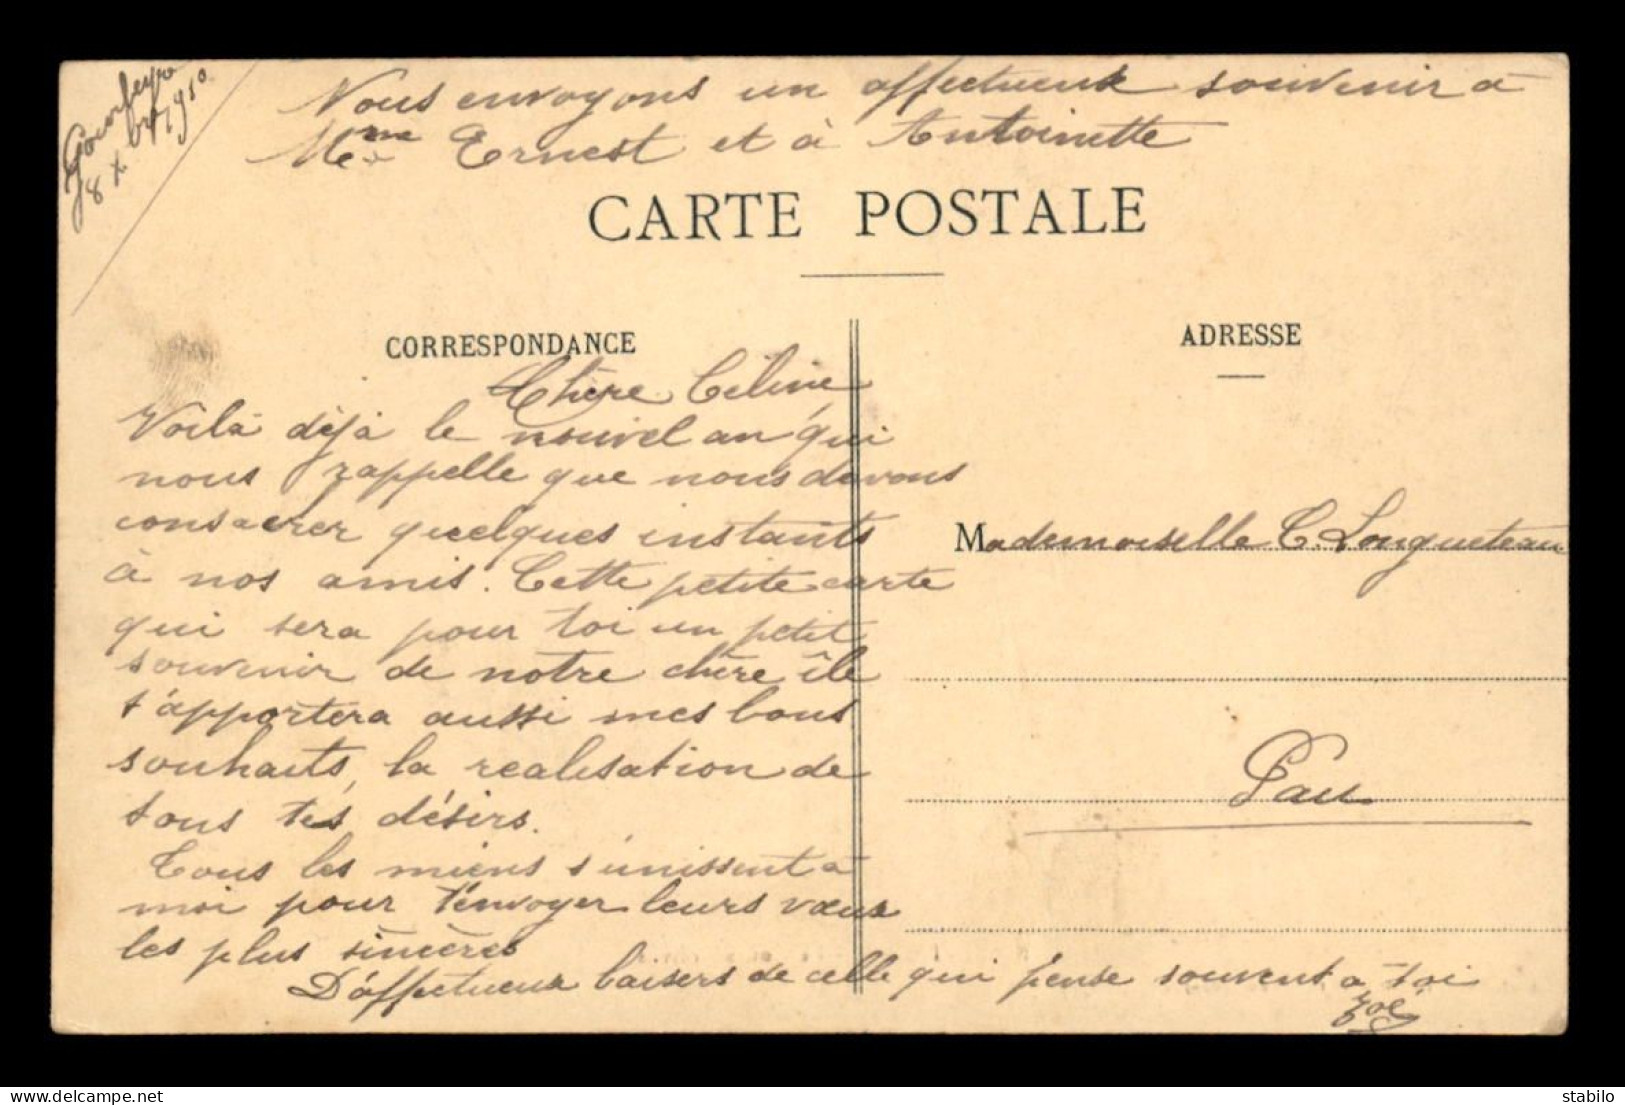 Gourbeyre
8 X 1910
Nous envoyons un affectueux souvenir à
Mme Ernest et à Antoinette
CARTE POSTALE
CORRESPONDANCE
ADRESSE
Chère Céline
Voilà déjà le nouvel an qui
nous rappelle que nous devons
consacrer quelques instants
à nos amis. Cette petite carte
qui sera pour toi un petit
souvenir de notre chère île
t'apportera aussi mes bons
souhaits, la realisation de
tous tes désirs.
Tous les miens s'unissent à
moi pour t'envoyer leurs vœux
les plus sincères
D'affectueux baisers de celle qui pense souvent a toi
Zoé
Mademoiselle C. Longueteau
Pau
delcampe.net
stabilo